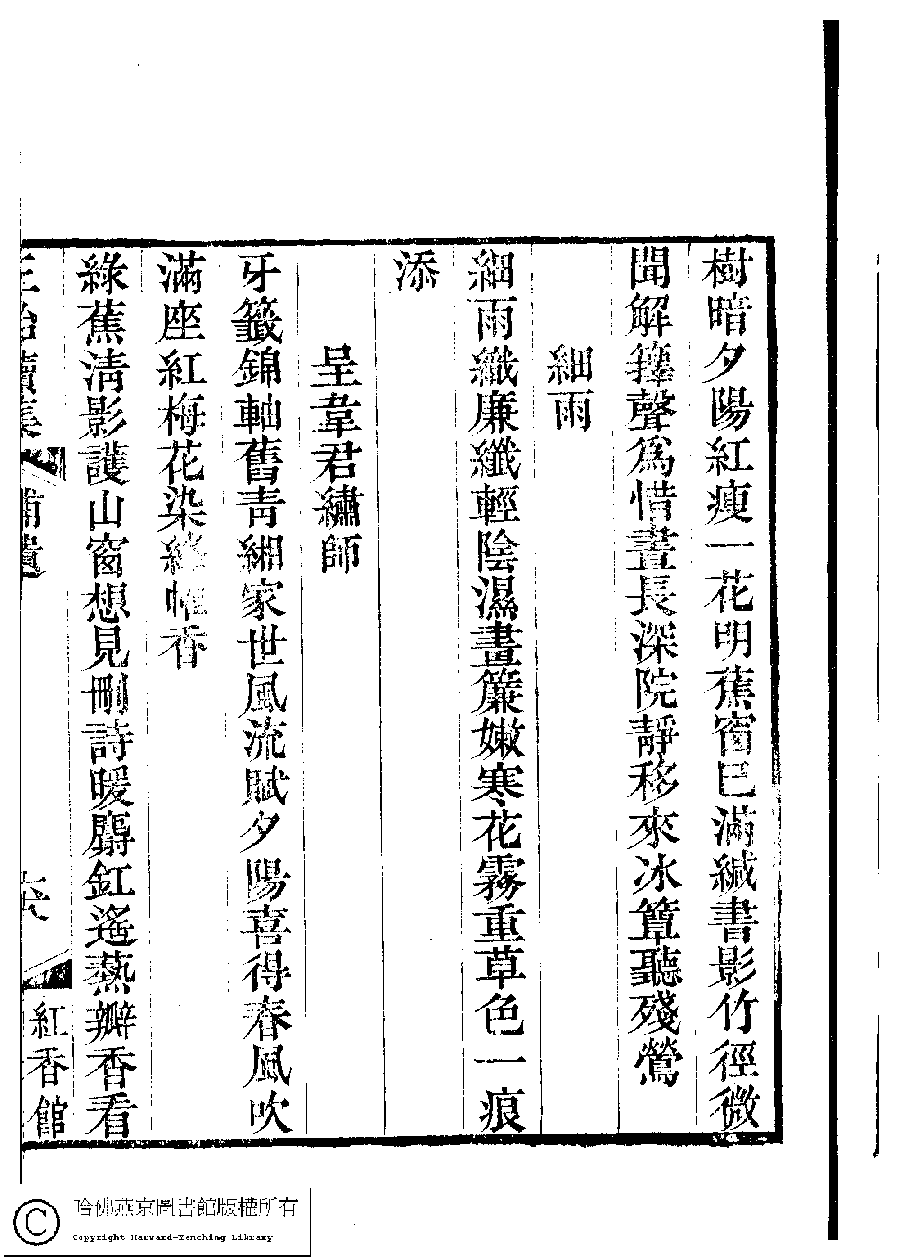 樹暗夕陽紅瘦一花明蕉窗已滿緘書影竹徑微
聞解籜聲爲惜晝長深院靜移來冰簟聽殘鶯
細雨
細雨纖廉纖輕陰濕畫簾嫩寒花霧重草色一痕
添
呈韋君繡師
牙籤錦軸舊青緗家世風流賦夕陽喜得春風吹
滿座紅梅花染絳帷香
綠蕉淸影護山窗想見刪詩暖麝釭遙爇瓣香看
續集
補遺
六
紅香館
哈佛燕京圖書館版權所有
Copyright Harvard-Yenching Library